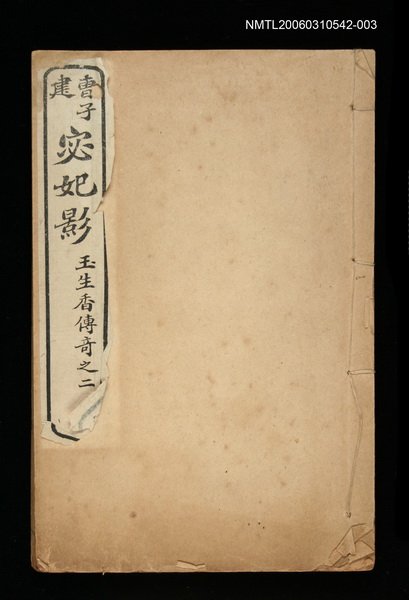 NMTL20060310542-003
曹子建
宓妃影
玉生香傳奇之二